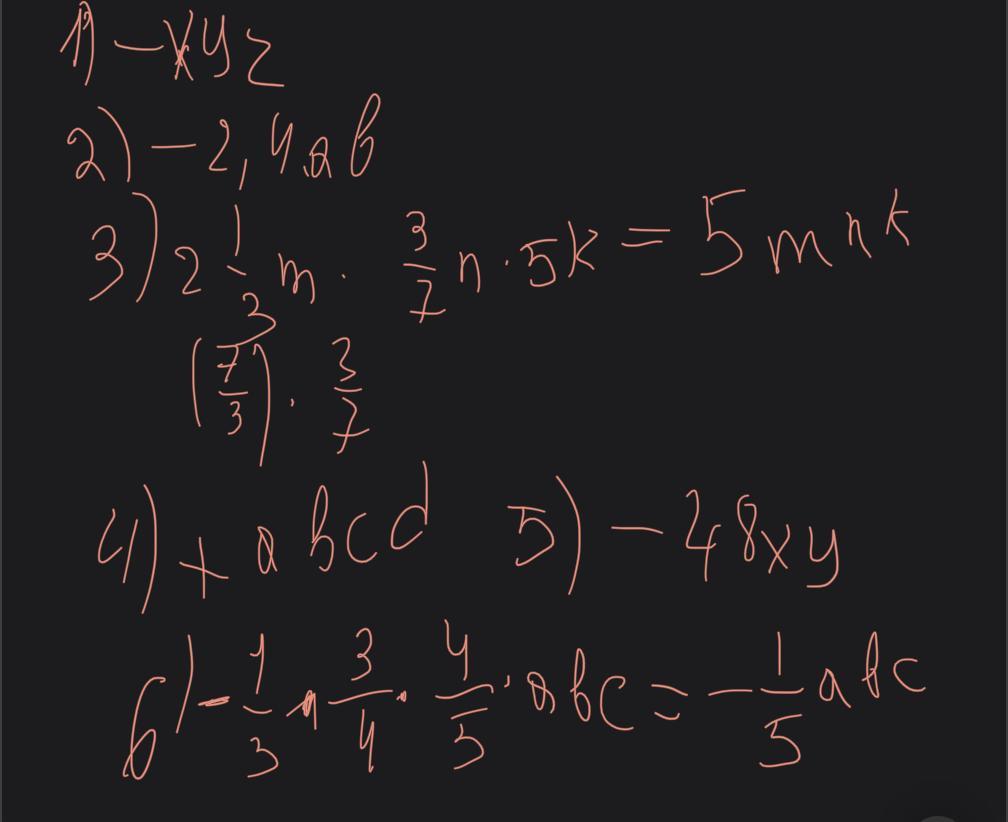 1) -xyz
2) -2,4ab
3) 2 1/3 m · 3/7 n · 5k = 5mnk
(7/3) · 3/7
4) + abcd 5) -48xy
6) -1/3 · 3/4 · 4/5 · abc = -1/5 abc